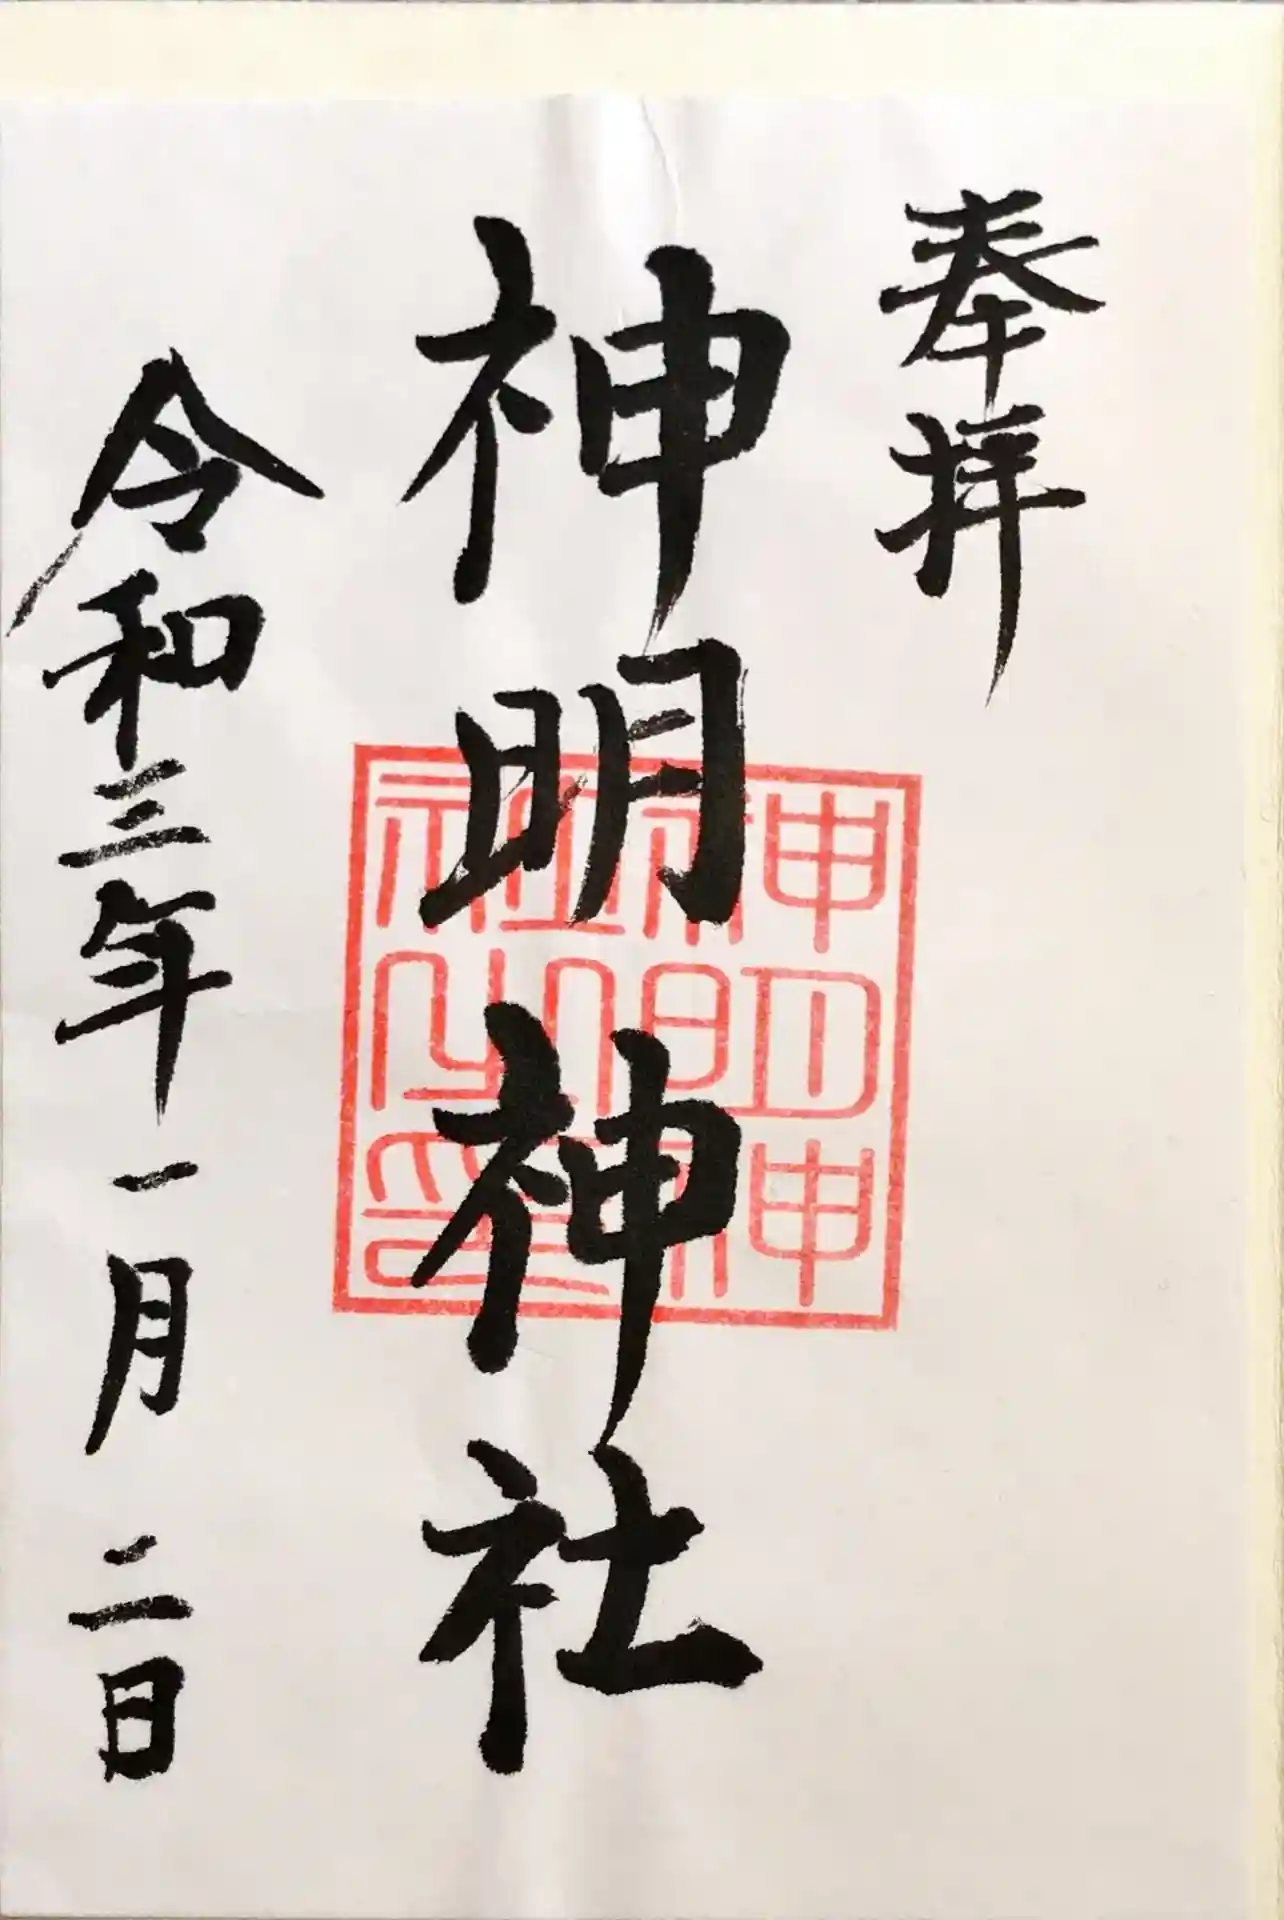 奉拝
神明神社
神明神社之印
令和三年一月二日